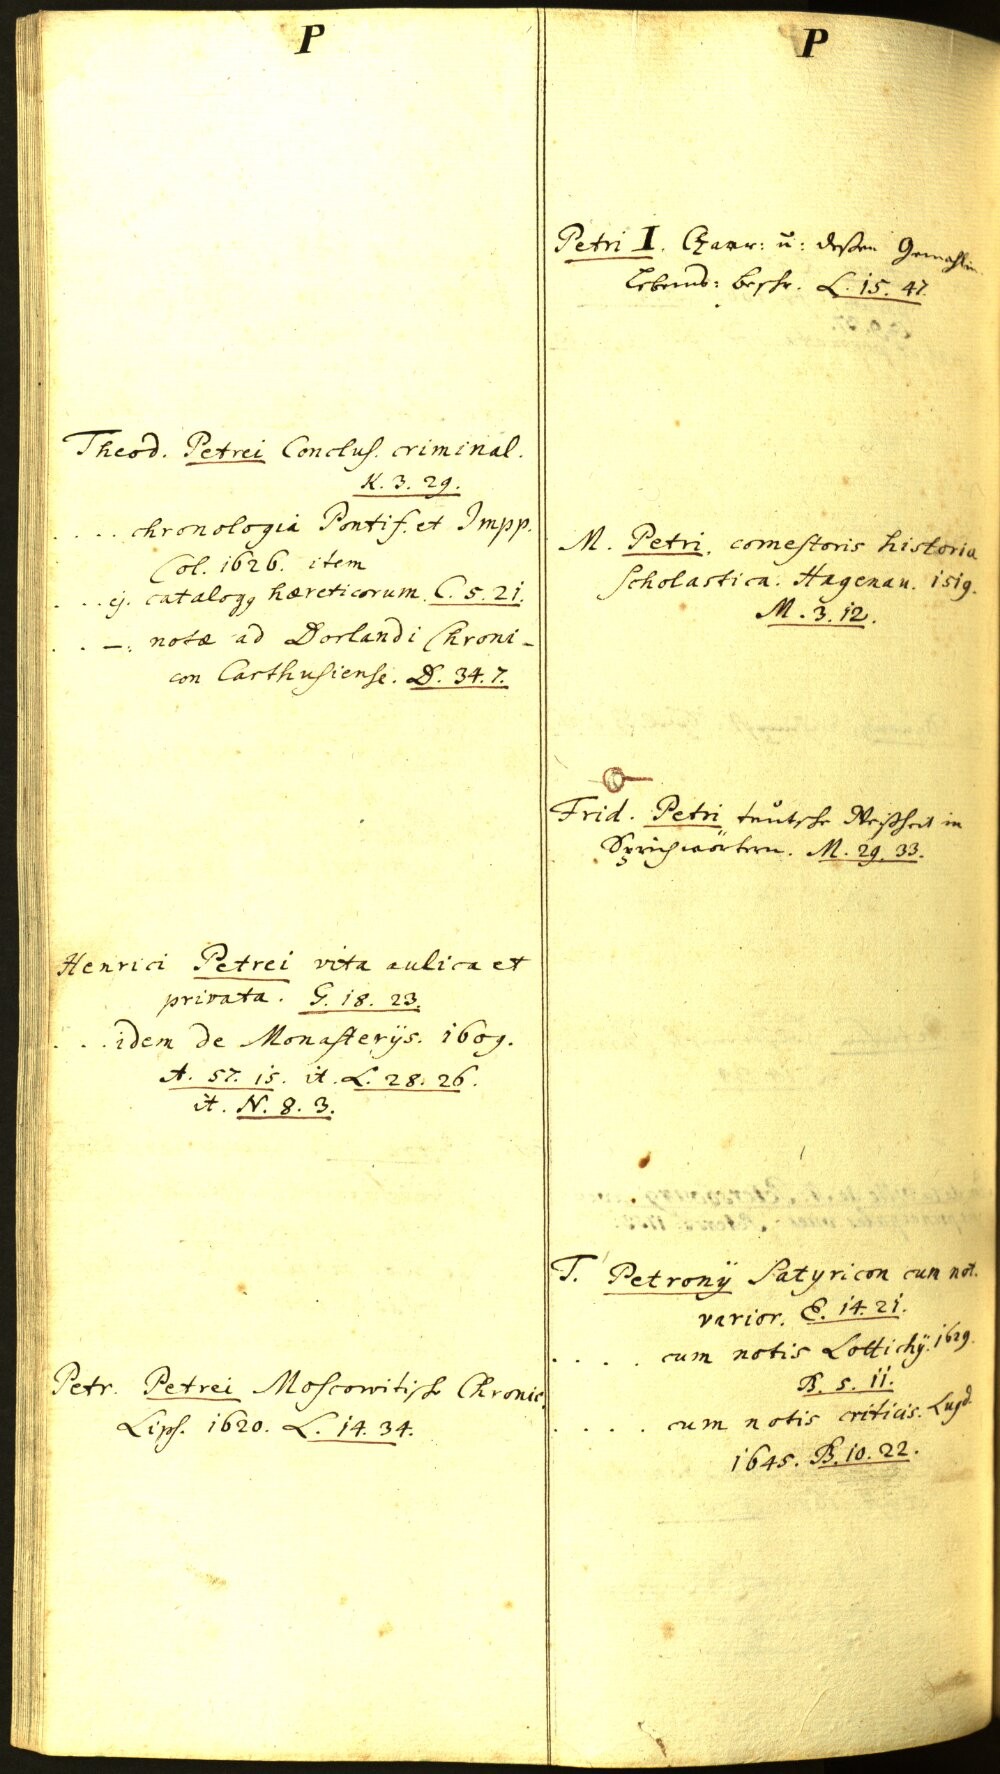 P
Theod. Petrei Conclus. criminal.
K. 3. 29.
.... chronologia Pontif. et Impp.
Col. 1626. item
... ej. catalogg hæreticorum. C. 5. 21.
.. —. notæ ad Dorlandi Chroni-
con Carthusiense. D. 34. 7.
Henrici Petrei vita aulica et
privata. G. 18. 23.
... idem de Monasterijs. 1609.
A. 57. 15. it. L. 28. 26.
it. N. 8. 3.
Petr. Petrei Moscowitische Chronic.
Lips. 1620. L. 14. 34.
P
Petri I. Czaar: u: deßen Gemahlin
Lebens: beschr. L. 15. 47.
M. Petri, comestoris historia
scholastica. Hagenau. 1519.
M. 3. 12.
Frid. Petri teutsche Weißheit in
Sprichwörtern. M. 29. 33.
T. Petronij Satyricon cum not.
varior. E. 14. 21.
.... cum notis Lottichij. 1629.
B. 5. 11.
.... cum notis criticis. Lugd.
1645. B. 10. 22.